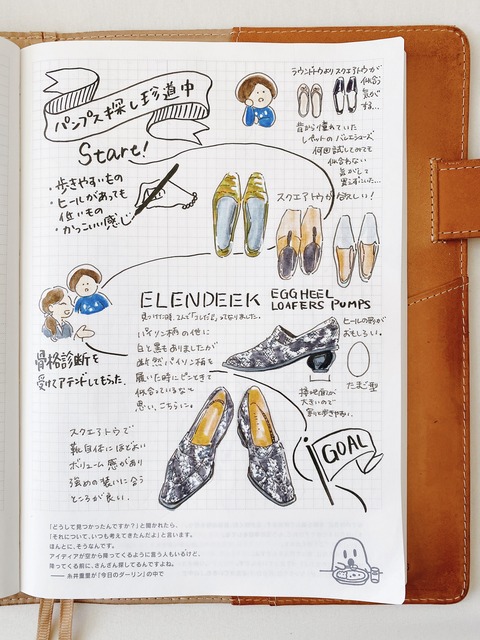 パンプス探し珍道中
Start!
・歩きやすいもの
・ヒールがあっても
低いもの
・かっこいい感じ
ラウンドトウよりスクエアトウが
似合う
気が
する…
昔から憧れていた
レペットのバレエシューズ
何回試してみても
似合わない
気がして
買えずにいた…
スクエアトウがほしい!
骨格診断を
受けてアテンドしてもらった。
ELENDEEK EGGHEEL
LOAFERS PUMPS
見つけた時、2人で「コレだ!」ってなりました。
パイソン柄の他に
白と黒もありましたが
断然パイソン柄を
履いた時にピンときて
似合っているなと
思い、こちらに。
ヒールの形が
おもしろい。
たまご型
接地面が
大きいので
割と歩きやすい。
スクエアトウで
靴自体にほどよい
ボリューム感があり
強めの装いに合う
ところが良い。
GOAL
「どうして見つかったんですか?」と聞かれたら、
「それについて、いつも考えてきたんだよ」と言います。
ほんとに、そうなんです。
アイディアが空から降ってくるように言う人もいるけど、
降ってくる前に、さんざん探してるんですよね。
── 糸井重里が『今日のダーリン』の中で